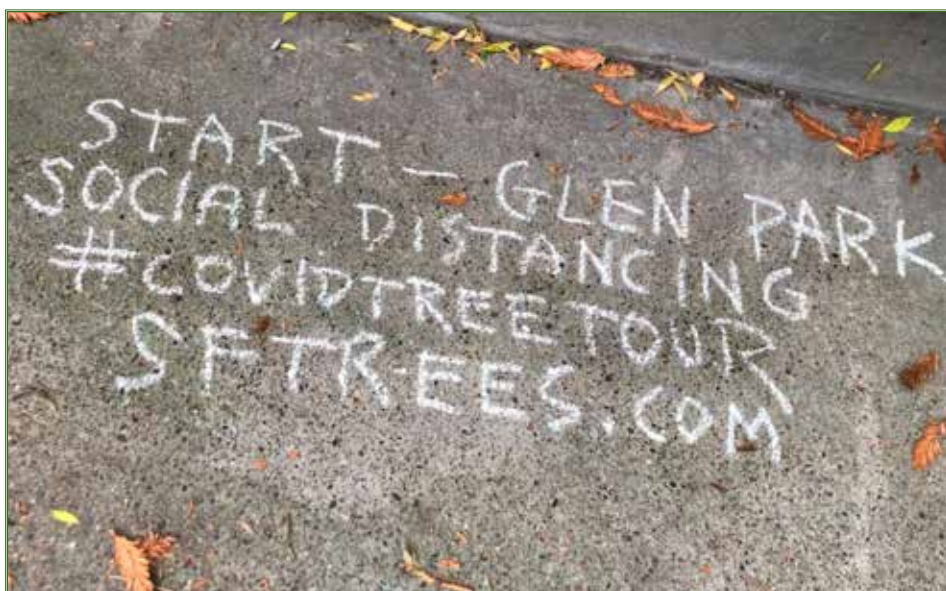 START — GLEN PARK
SOCIAL DISTANCING
#COVIDTREETOUR
SFTREES.COM